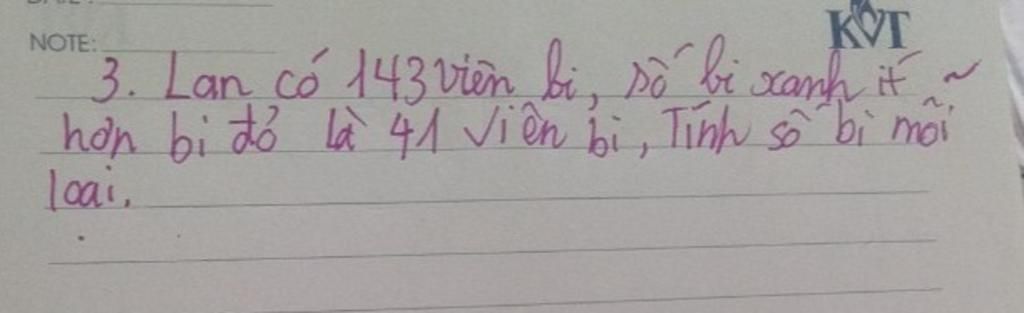 KVT
NOTE:
3. Lan có 143 viên bi, số bi xanh ít ~
hơn bi đỏ là 41 viên bi, Tính số bi mỗi
loai.